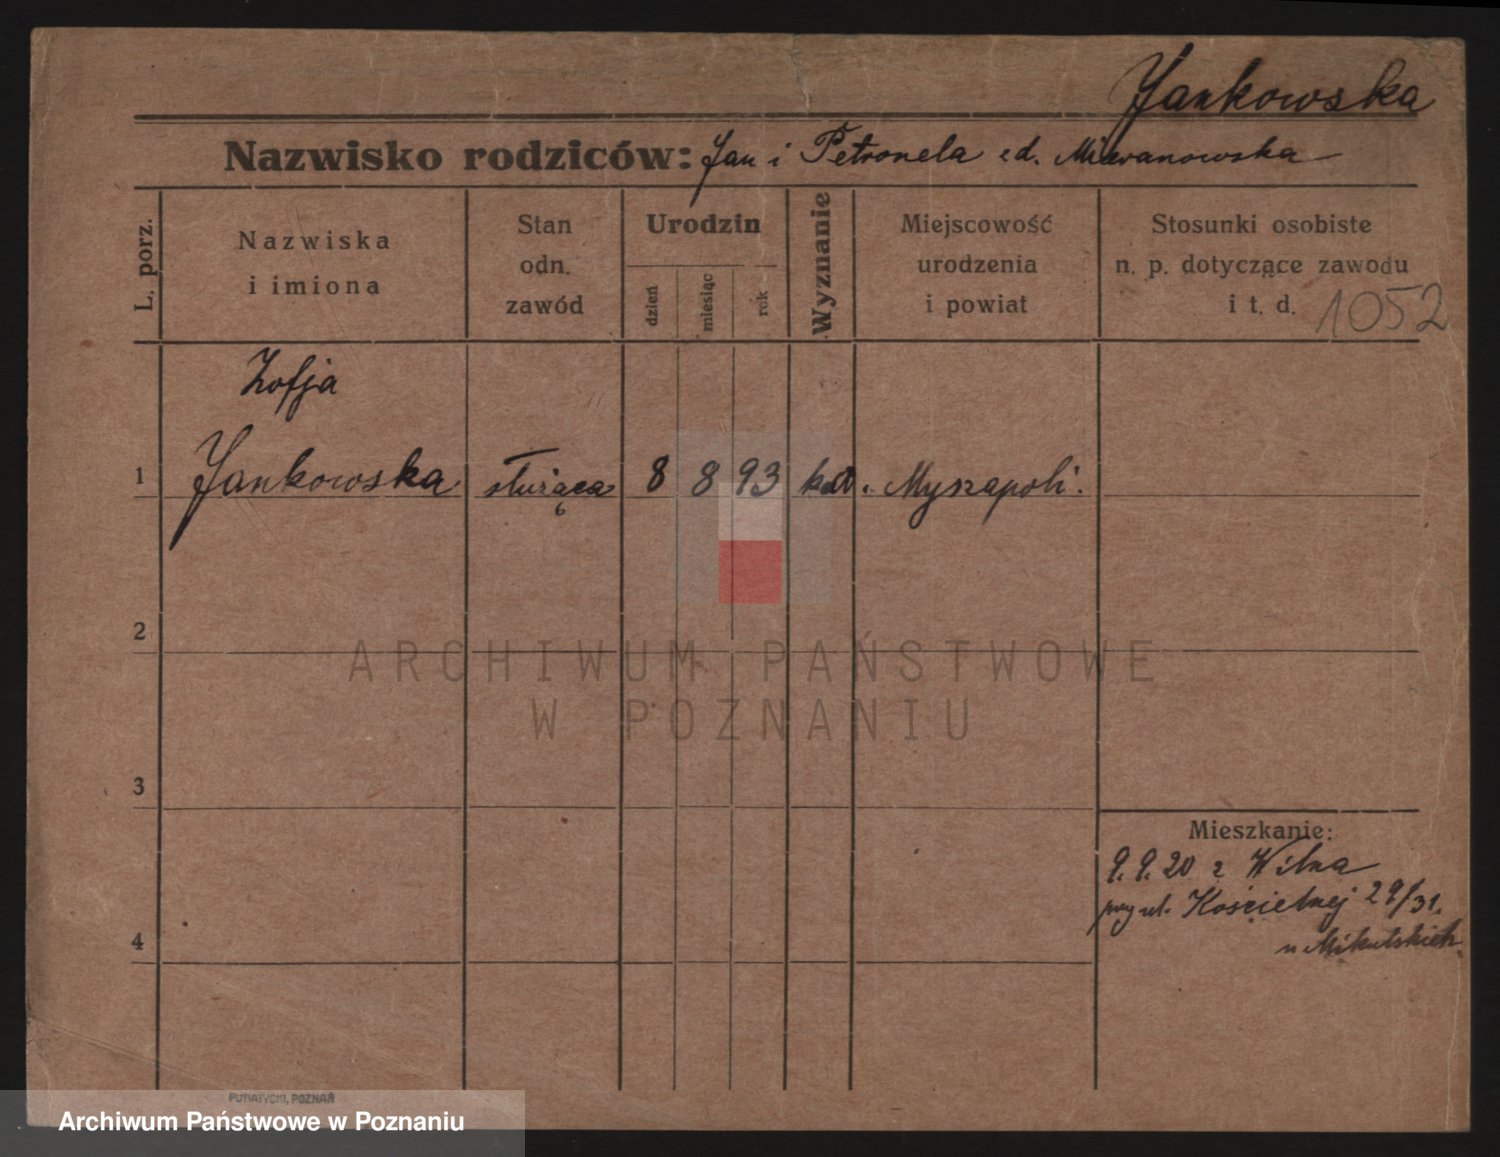 Jankowska
Nazwisko rodziców: Jan i Petronela
L. porz.
Nazwiska i imiona
Stan odn. zawód
Urodzin
dzień
miesiąc
rok
Wyznanie
Miejscowość urodzenia i powiat
Stosunki osobiste n. p. dotyczące zawodu i t. d.
1052
Zofja
1 Jankowska służąca 8 8 93 kat. Myszapoli.
2
ARCHIWUM PAŃSTWOWE
W POZNANIU
3
Mieszkanie:
9. 9. 20 z Wilna
przy ul. Kościelnej 29/31.
u Mikulskich.
4
PUTIATYCKI, POZNAŃ
Archiwum Państwowe w Poznaniu